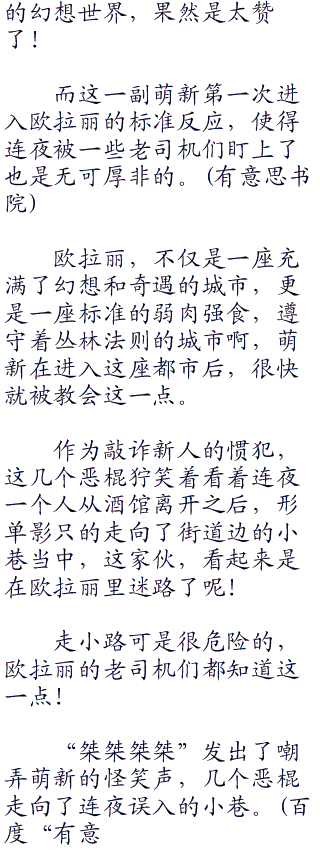 的幻想世界，果然是太赞
了！
而这一副萌新第一次进
入欧拉丽的标准反应，使得
连夜被一些老司机们盯上了
也是无可厚非的。(有意思书
院)
欧拉丽，不仅是一座充
满了幻想和奇遇的城市，更
是一座标准的弱肉强食，遵
守着丛林法则的城市啊，萌
新在进入这座都市后，很快
就被教会这一点。
作为敲诈新人的惯犯，
这几个恶棍狞笑着看着连夜
一个人从酒馆离开之后，形
单影只的走向了街道边的小
巷当中，这家伙，看起来是
在欧拉丽里迷路了呢！
走小路可是很危险的，
欧拉丽的老司机们都知道这
一点！
“桀桀桀桀”发出了嘲
弄萌新的怪笑声，几个恶棍
走向了连夜误入的小巷。(百
度“有意